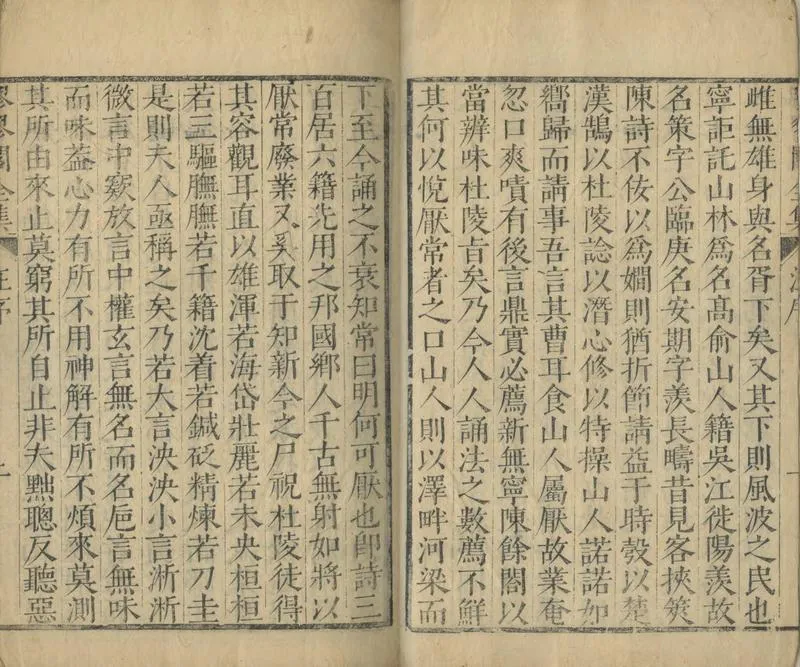 雌無雄身與名胥下矣又其下則風波之民也
寧詎託山林爲名高俞山人籍吳江徙陽羨故
名策字公臨庚名安期字羨長疇昔見客挾筴
陳詩不佞以爲嫺則猶折節請益于時彀以楚
漢鵠以杜陵諗以潛心修以特操山人諾諾如
嚮歸而請事吾言其曹耳食山人屬厭故業奄
忽口爽嘖有後言鼎實必薦新無寧陳餘閣以
當辨味杜陵旨矣乃今人人誦法之數薦不鮮
其何以悅厭常者之口山人則以澤畔河梁而
下至今誦之不衰知常曰明何可厭也卽詩三
百居六籍先用之邦國鄉人千古無射如將以
厭常廢業又奚取于知新今之尸祝杜陵徒得
其容觀耳直以雄渾若海岱壯麗若未央桓桓
若三驅膴膴若千籍沈着若鍼砭精煉若刀圭
是則夫人亟稱之矣乃若大言泱泱小言淅淅
微言中窾放言中權玄言無名而名巵言無味
而味葢心力有所不用神解有所不煩來莫測
其所由來止莫窮其所自止非夫黜聰反聽惡
翏翏閣全集 汪序